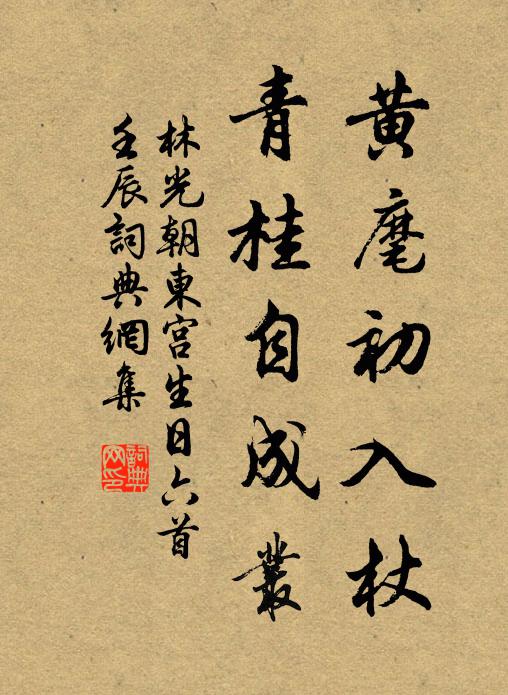 黃麾初入杖
青桂自成叢
林光朝東宮生日六首
壬辰詞典網集
詞典網印